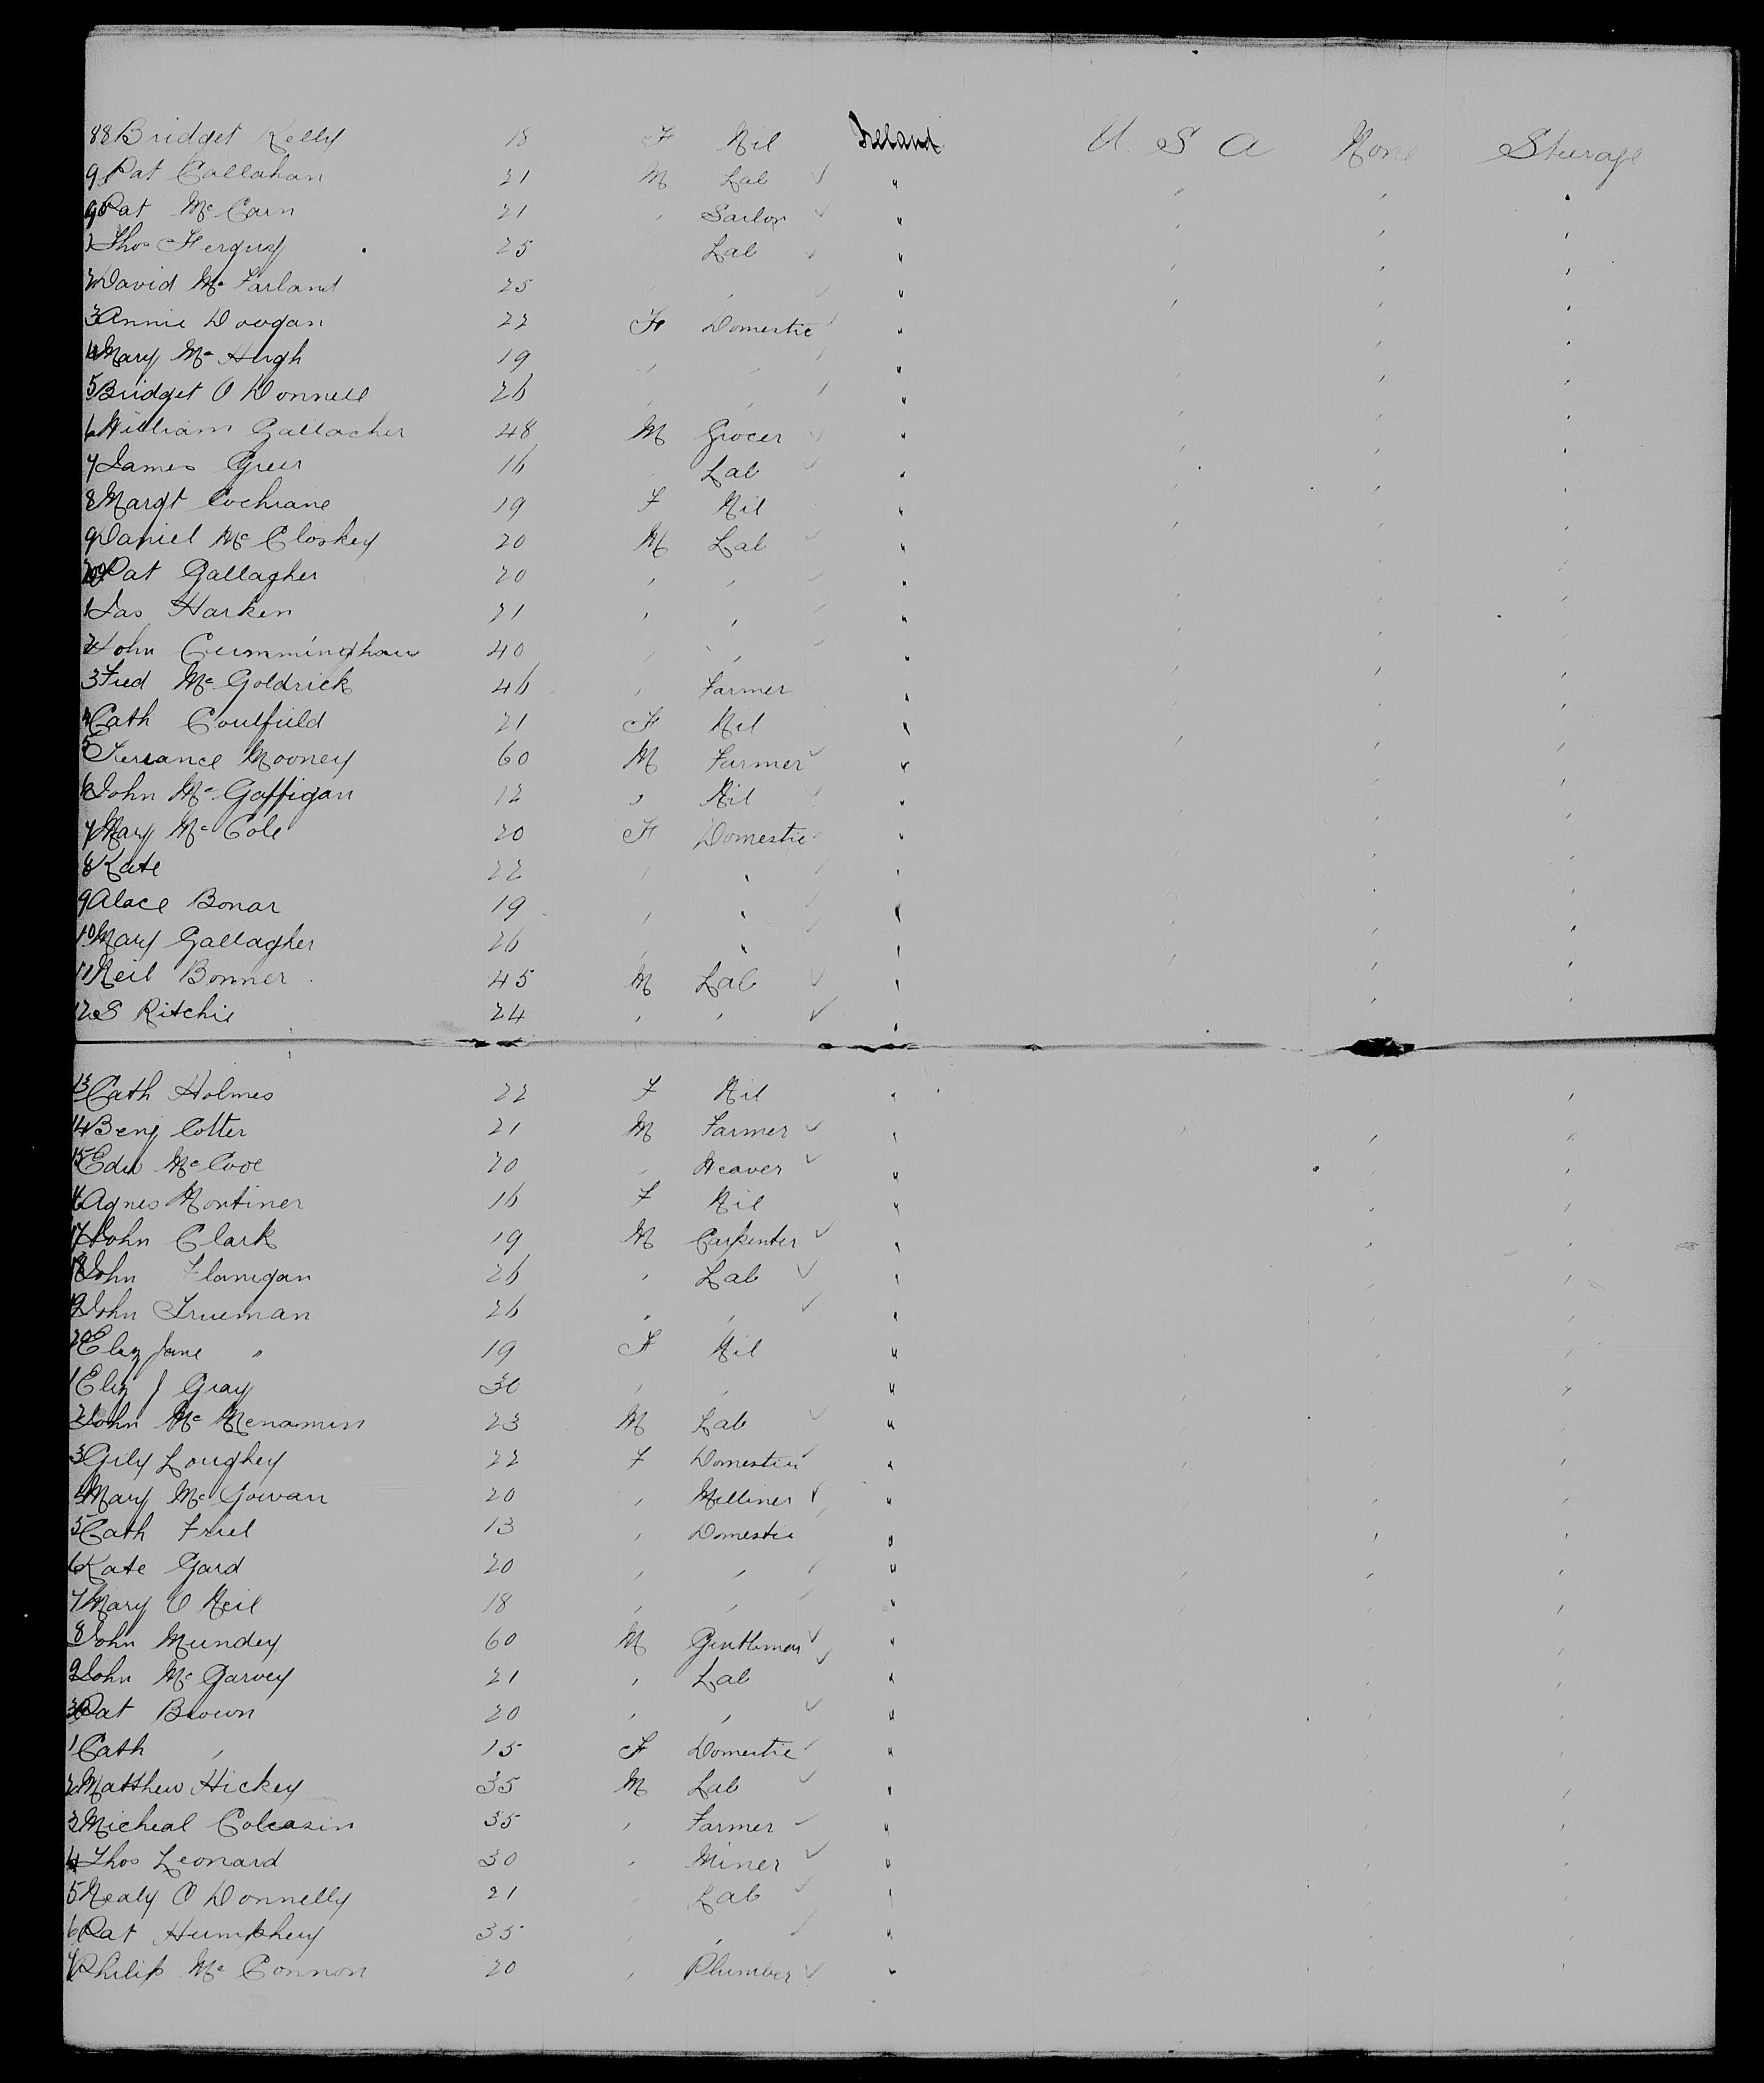 88 Bridget Kelly 18 F Nil Ireland U. S A None Sturage
9 Pat Callahan 21 M Lab ✓ " ' ' "
90 Pat Mc Carn 21 ' Sailor ✓ " ' ' '
1 Thos Ferguy 25 Lab ✓ " ' ' '
2 David Mc Farland 25 ' ' ✓ " ' ' '
3 Annie Doogan 22 F Domestic ✓ " ' ' '
4 Mary Mc Hugh 19 ' ' ✓ " ' ' '
5 Bridget O Donnell 26 ' ' ✓ " ' ' '
6 William Gallacher 48 M Grocer ✓ " ' ' '
7 James Greer 16 Lab ✓ " ' ' '
8 Margt Cochrane 19 F Nil " ' ' '
9 Daniel Mc Closkey 20 M Lab ✓ " ' ' '
200 Pat Gallagher 20 ' ' ✓ " ' ' '
1 Jas Harken 21 ' ' ✓ " ' ' '
2 John Cumminghau 40 ' ' ✓ " ' ' '
3 Fred Mc Goldrick 46 ' Farmer " ' ' '
4 Cath Coulfield 21 F Nil " ' ' '
5 Terrance Mooney 60 M Farmer ✓ " ' ' '
6 John Mc Gaffigan 12 ' Nil ✓ " ' ' '
7 Mary Mc Cole 20 F Domestic ✓ " ' ' '
8 Kate 22 ' ' ✓ " ' ' '
9 Alace Bonar 19 ' ' ✓ " ' ' '
10 Mary Gallagher 26 ' ' ✓ " ' ' '
11 Neil Bonner 45 M Lab ✓ " ' ' '
12 S Ritchie 24 ' ' ✓ " ' ' '
13 Cath Holmes 22 F Nil " ' '
14 Benj Cotter 21 M Farmer ✓ " ' ' '
15 Edw Mc Cvoe 20 ' Weaver ✓ " ' '
16 Agnes Montiner 16 F Nil " ' '
17 John Clark 19 M Carpenter ✓ " ' '
18 John Flanigan 26 ' Lab ✓ " ' '
19 John Trueman 26 " ' ✓ " ' '
20 Eliz Jane " 19 F Nil " ' '
1 Eliz J Gray 30 ' ' " ' ' '
2 John Mc Menamin 23 M Lab ✓ " ' '
3 Gily Loughey 22 F Domestic ✓ " ' ' '
4 Mary Mc Gowan 20 ' Milliner ✓ " ' '
5 Cath Friel 13 ' Domestic " ' '
6 Kate Gard 20 ' ' ✓ " ' ' '
7 Mary O Neil 18 ' ' ✓ " ' ' '
8 John Mundey 60 M Gentleman ✓ " ' '
9 John Mc Garvey 21 ' Lab ✓ " ' '
30 Pat Brown 20 ' ' ✓ " ' '
1 Cath ' 15 F Domestic ✓ " ' '
2 Matthew Hickey 35 M Lab ✓ " ' '
3 Micheal Colcasin 35 ' Farmer ✓ " ' '
4 Thos Leonard 30 ' Miner ✓ " ' '
5 Nealy O Donnelly 21 Lab ✓ " ' '
6 Pat Humphey 35 ' ' ✓ " ' '
7 Philip Mc Connon 20 ' Plumber ✓ " ' '